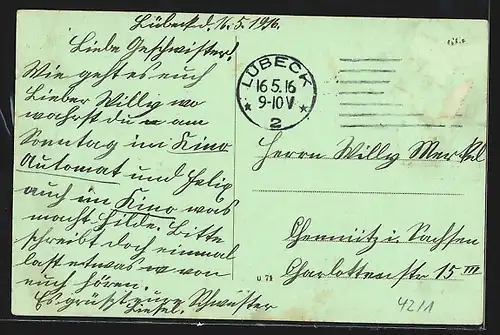 Lübeck d. 16.5.1916.
Liebe Geschwister!
Wie geht es euch
Lieber Willy wo
wahrst du am
Sonntag im Kino
Automat und Felix
auch im Kino was
macht Hilde. Bitte
schreibt doch einmal
last etwas von
euch hören.
Es grüßt eure Schwester
Liesel.
LÜBECK
16.5.16
9-10 V
* 2 *
Herrn Willy Merkel
Chemnitz i. Sachsen
Charlottenstr 15 III
u 71
42/1